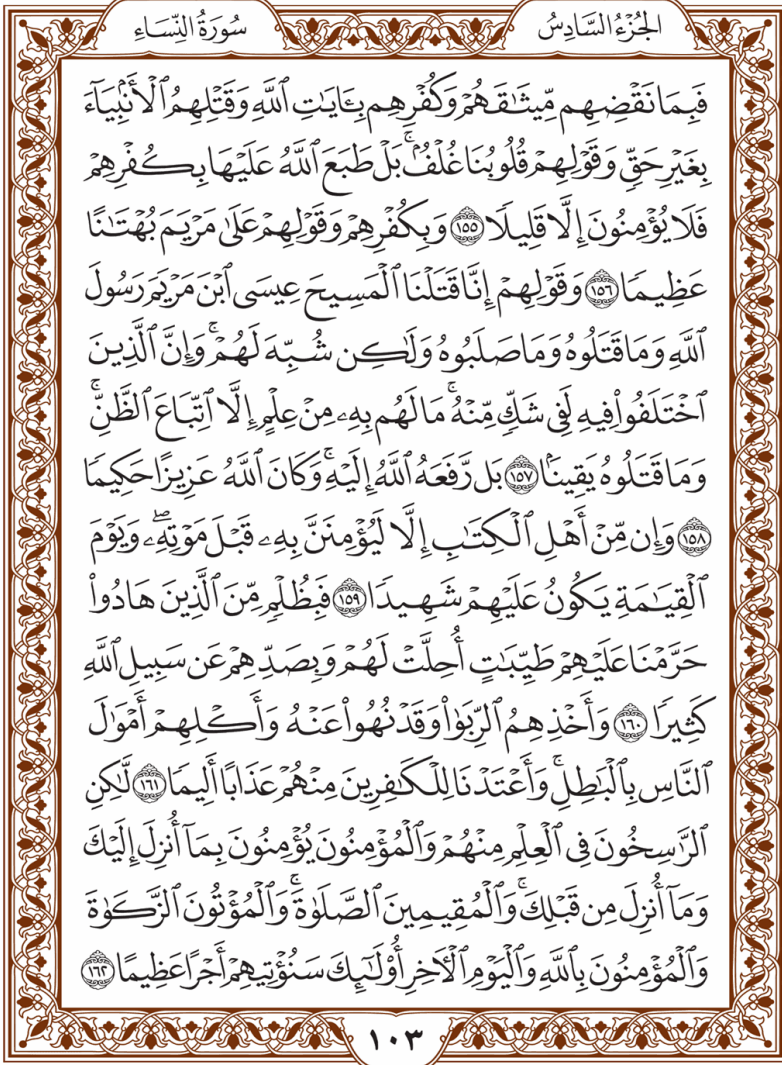 الجُزْءُ السَّادِسُ
سُورَةُ النِّسَاءِ
فَبِمَا نَقْضِهِم مِّيثَٰقَهُمْ وَكُفْرِهِم بِـَٔايَٰتِ ٱللَّهِ وَقَتْلِهِمُ ٱلْأَنۢبِيَآءَ
بِغَيْرِ حَقٍّ وَقَوْلِهِمْ قُلُوبُنَا غُلْفٌۢۚ بَلْ طَبَعَ ٱللَّهُ عَلَيْهَا بِكُفْرِهِمْ
فَلَا يُؤْمِنُونَ إِلَّا قَلِيلًا ١٥٥ وَبِكُفْرِهِمْ وَقَوْلِهِمْ عَلَىٰ مَرْيَمَ بُهْتَٰنًا
عَظِيمًا ١٥٦ وَقَوْلِهِمْ إِنَّا قَتَلْنَا ٱلْمَسِيحَ عِيسَى ٱبْنَ مَرْيَمَ رَسُولَ
ٱللَّهِ وَمَا قَتَلُوهُ وَمَا صَلَبُوهُ وَلَٰكِن شُبِّهَ لَهُمْۚ وَإِنَّ ٱلَّذِينَ
ٱخْتَلَفُوا۟ فِيهِ لَفِى شَكٍّ مِّنْهُۚ مَا لَهُم بِهِۦ مِنْ عِلْمٍ إِلَّا ٱتِّبَاعَ ٱلظَّنِّۚ
وَمَا قَتَلُوهُ يَقِينًۢا ١٥٧ بَل رَّفَعَهُ ٱللَّهُ إِلَيْهِۚ وَكَانَ ٱللَّهُ عَزِيزًا حَكِيمًا
١٥٨ وَإِن مِّنْ أَهْلِ ٱلْكِتَٰبِ إِلَّا لَيُؤْمِنَنَّ بِهِۦ قَبْلَ مَوْتِهِۦۖ وَيَوْمَ
ٱلْقِيَٰمَةِ يَكُونُ عَلَيْهِمْ شَهِيدًا ١٥٩ فَبِظُلْمٍ مِّنَ ٱلَّذِينَ هَادُوا۟
حَرَّمْنَا عَلَيْهِمْ طَيِّبَٰتٍ أُحِلَّتْ لَهُمْ وَبِصَدِّهِمْ عَن سَبِيلِ ٱللَّهِ
كَثِيرًا ١٦٠ وَأَخْذِهِمُ ٱلرِّبَوٰا۟ وَقَدْ نُهُوا۟ عَنْهُ وَأَكْلِهِمْ أَمْوَٰلَ
ٱلنَّاسِ بِٱلْبَٰطِلِۚ وَأَعْتَدْنَا لِلْكَٰفِرِينَ مِنْهُمْ عَذَابًا أَلِيمًا ١٦١ لَّٰكِنِ
ٱلرَّٰسِخُونَ فِى ٱلْعِلْمِ مِنْهُمْ وَٱلْمُؤْمِنُونَ يُؤْمِنُونَ بِمَآ أُنزِلَ إِلَيْكَ
وَمَآ أُنزِلَ مِن قَبْلِكَۚ وَٱلْمُقِيمِينَ ٱلصَّلَوٰةَۚ وَٱلْمُؤْتُونَ ٱلزَّكَوٰةَ
وَٱلْمُؤْمِنُونَ بِٱللَّهِ وَٱلْيَوْمِ ٱلْـَٔاخِرِ أُو۟لَٰٓئِكَ سَنُؤْتِيهِمْ أَجْرًا عَظِيمًا ١٦٢
١٠٣